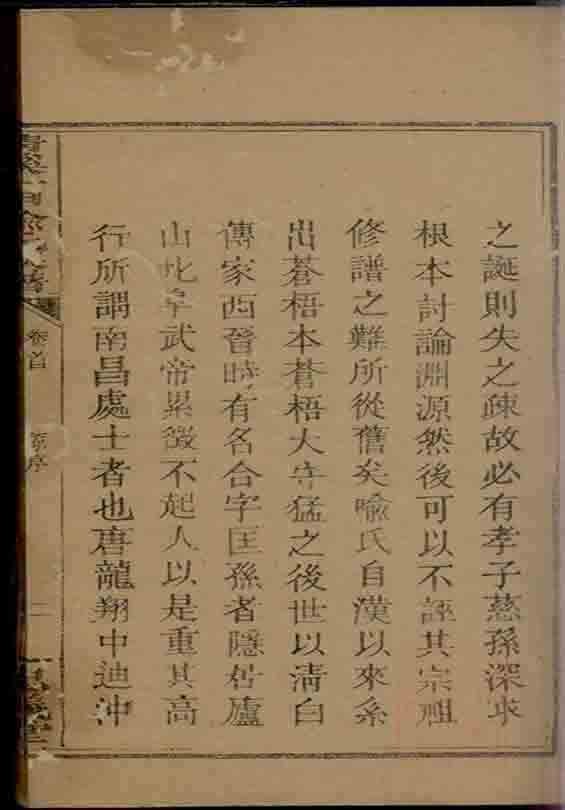 之誕則失之疎故必有孝子慈孫深求
根本討論淵源然後可以不誣其宗祖
修譜之難所從舊矣喻氏自漢以來系
出蒼梧本蒼梧太守猛之後世以清白
傳家西晉時有名合字匡孫者隱居廬
山北阜武帝累徵不起人以是重其高
行所謂南昌處士者也唐龍翔中迪沖
卷首
序
二